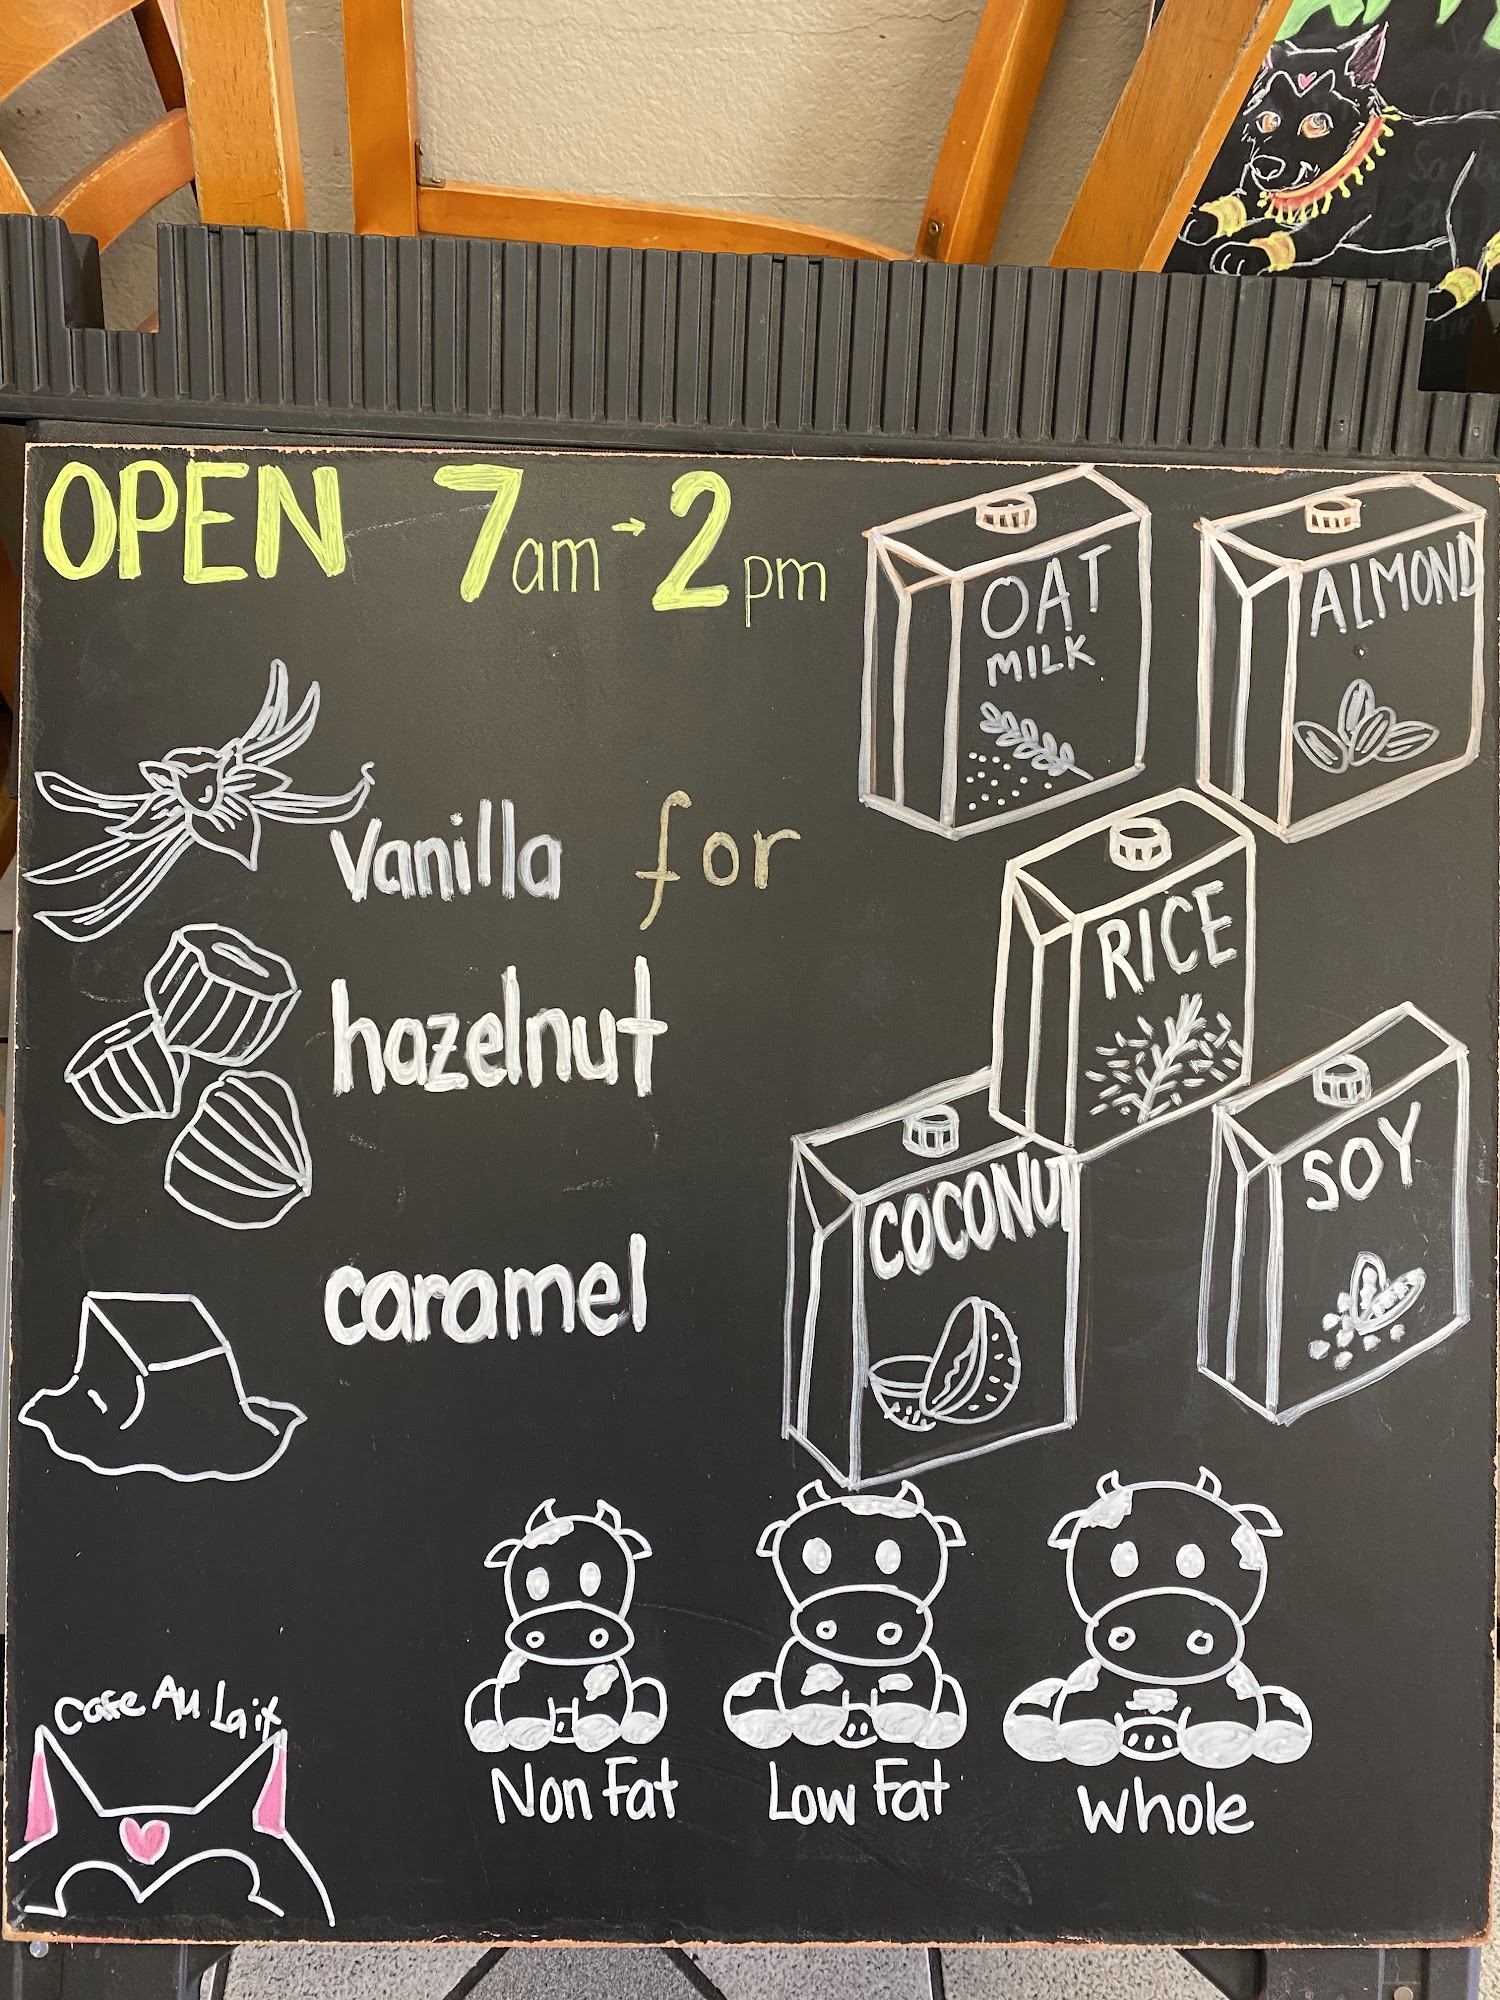 OPEN 7am → 2pm
OAT
MILK
ALMOND
vanilla for
RICE
hazelnut
COCONUT
SOY
caramel
Cafe Au Lait
Non Fat
Low Fat
Whole